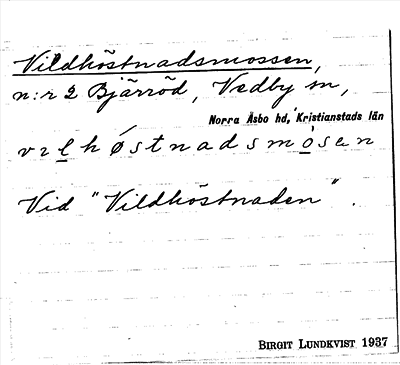 Vildhöstnadsmossen,
n:r 2 Bjärröd, Vedby sn,
Norra Åsbo hd, Kristianstads län
vɪlhøstnadsmosen
Vid "Vildhöstnaden".
BIRGIT LUNDKVIST 1937